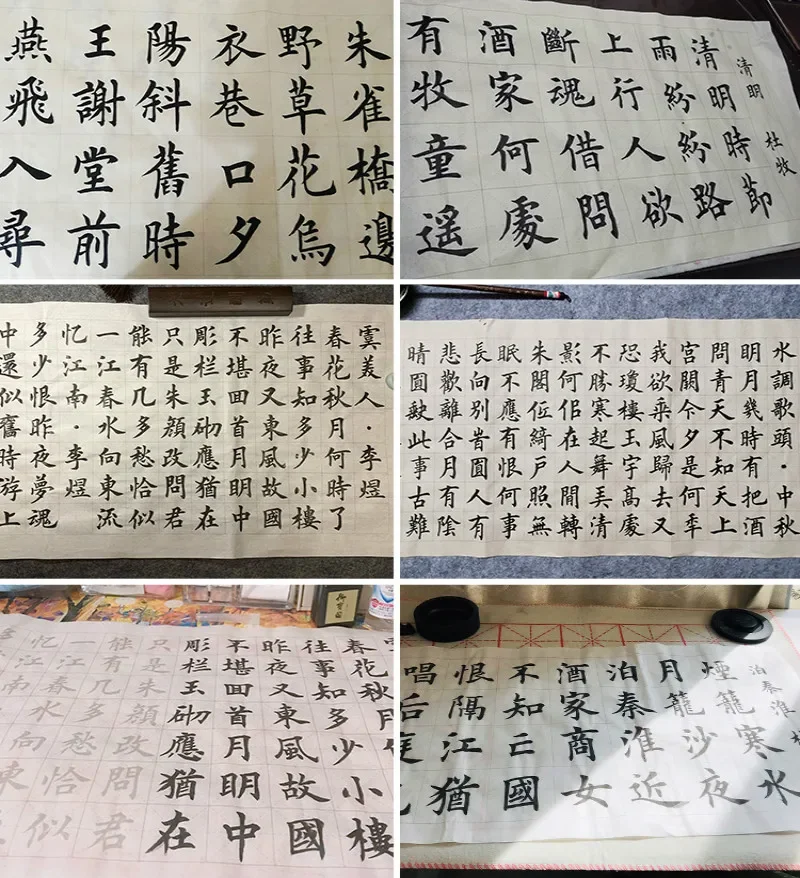 朱雀橋邊
野草花烏
衣巷口夕
陽斜舊時
王謝堂前
燕飛入尋
清明 杜牧
清明時節
雨紛紛路
上行人欲
斷魂借問
酒家何處
有牧童遥
虞美人·李煜
春花秋月何時了
往事知多少小樓
昨夜又東風故國
不堪囬首月明中
彫栏玉砌應猶在
只是朱顔改問君
能有几多愁恰似
一江春水向東流
忆江南·李煜
多少恨昨夜夢魂
中還似舊時游上
水調歌頭·中秋
明月幾時有把酒
問青天不知天上
宮闕今夕是何年
我欲乘風歸去又
恐瓊樓玉宇髙處
不勝寒起舞弄清
影何佀在人間轉
朱閣低綺戶照無
眠不應有恨何事
長向別旹圓人有
悲歡離合月有陰
晴圓缺此事古難
春花秋月
往事知多少小樓
昨夜又東風故國
不堪囬首月明中
彫栏玉砌應猶在
只是朱顔改問君
能有几多愁恰似
江春水向東
忆江南
泊秦淮
煙籠寒水
月籠沙夜
泊秦淮近
酒家商女
不知亡國
恨隔江猶
唱后庭